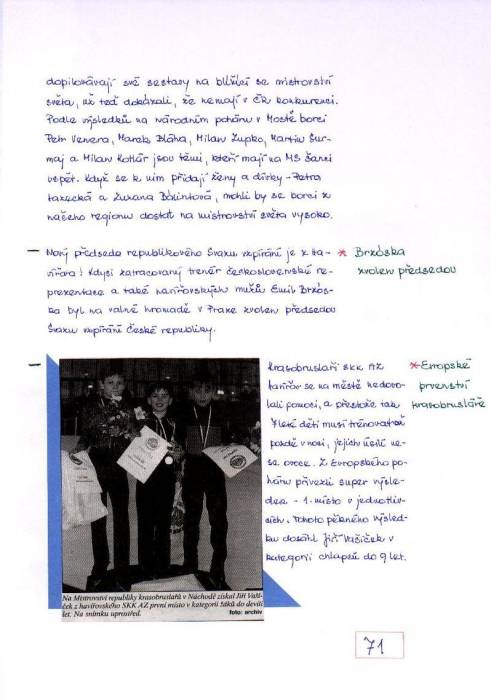 dopilovávají své sestavy na blížící se mistrovství
světa, už teď dokázali, že nemají v ČR konkurenci.
Podle výsledků na národním poháru v Mostě borci
Petr Venera, Marek Bláha, Milan Župko, Martin Šur-
maj a Milan Kotlár jsou těmi, kteří mají na MS šanci
uspět. Když se k nim přidají ženy a dívky - Petra
a Zuzana Bálintová, mohli by se borci z
našeho regionu dostat na mistrovství světa vysoko.
Nový předseda republikového Svazu vzpírání je z Ha-
vířova! Kdysi zatracovaný trenér československé re-
prezentace a také havířovských mužů Emil Brzós-
ka byl na valné hromadě v Praze zvolen předsedou
Svazu vzpírání České republiky.
* Brzóska
zvolen předsedou
Krasobruslaři SKK AZ
Havířov se na městě nedovo-
lali pomoci, a přestože tak
leté děti musí trénovat
pozdě v noci, jejich úsilí ne-
se ovoce. Z Evropského po-
háru přivezli super výsle-
dek - 1. místo v jednotliv-
cích. Tohoto pěkného výsled-
ku dosáhl Jiří Vašíček v
kategorii chlapců do 9 let.
* Evropské
prvenství
krasobrusláře
Na Mistrovství republiky krasobruslařů v Náchodě získal Jiří Vaší-
ček z havířovského SKK AZ první místo v kategorii žáků do devíti
let. Na snímku uprostřed. foto: archiv
71